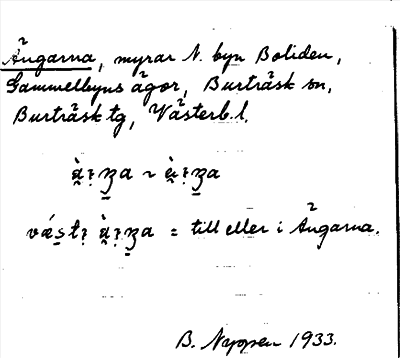 Ängarna, myrar N. byn Boliden,
Gammelbyns ägor, Burträsk sn,
Burträsk tg, Västerb.l.
~
= till eller i Ängarna.
B. Nyppen 1933.